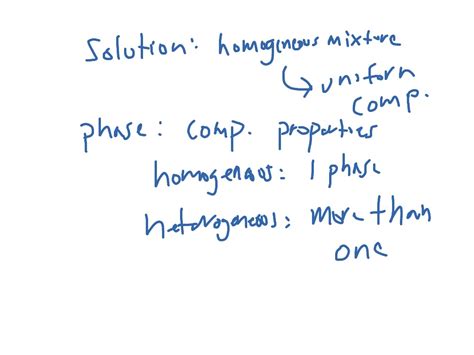 Solution: homogeneous mixture
uniform
comp.
phase: comp. properties
homogeneous: 1 phase
heterogeneous: more than
one